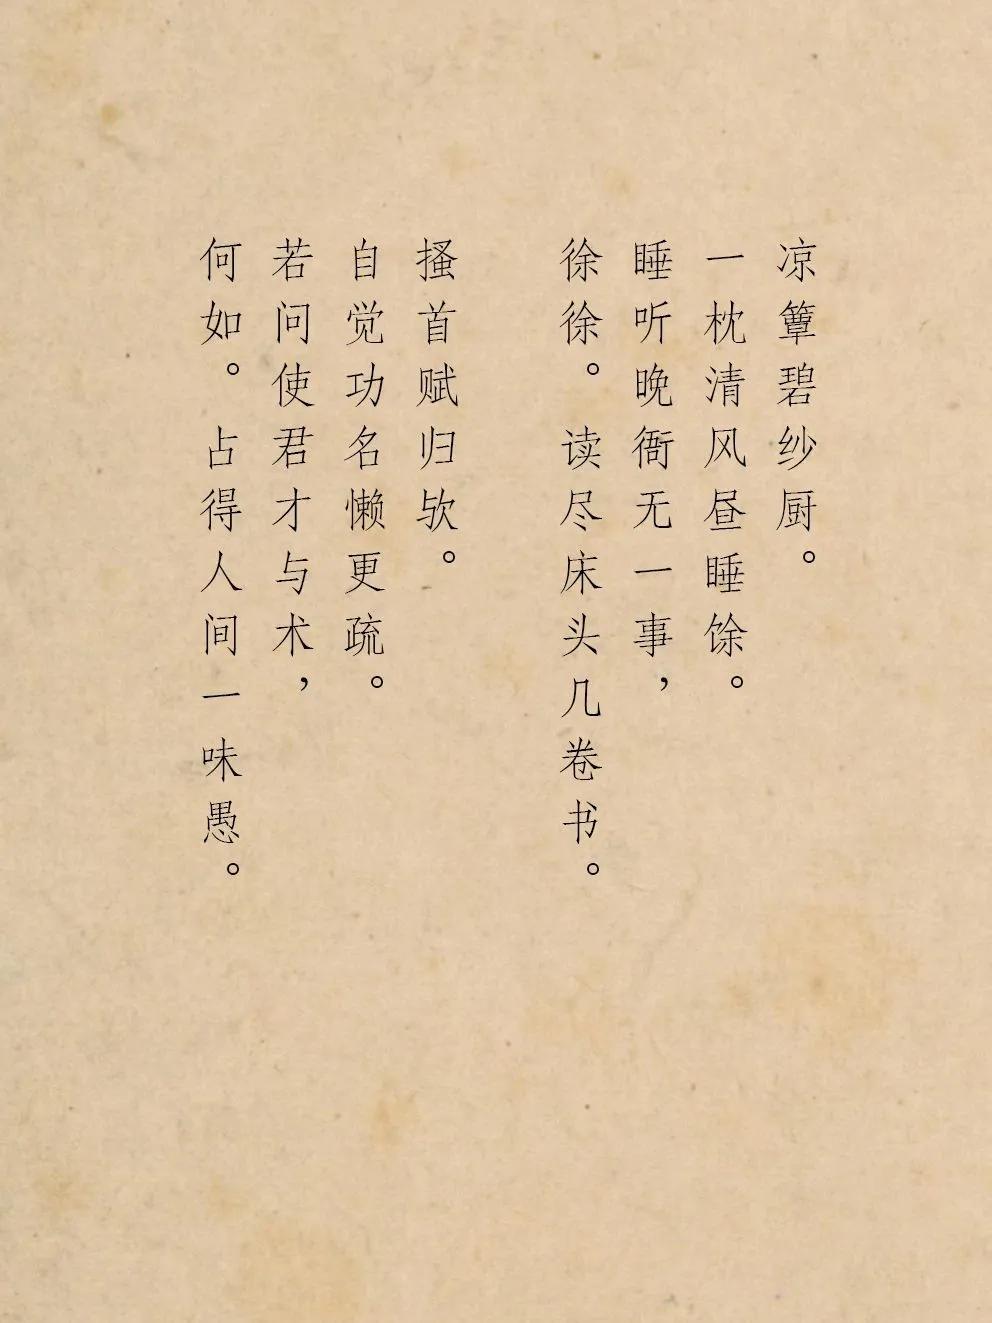 凉簟碧纱厨。
一枕清风昼睡馀。
睡听晚衙无一事，
徐徐。读尽床头几卷书。
搔首赋归欤。
自觉功名懒更疏。
若问使君才与术，
何如。占得人间一味愚。